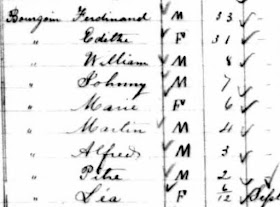 Bourgoin Ferdinand M 33
" Edithe F 31
" William M 8
" Johnny M 7
" Marie F 6
" Martin M 4
" Alfred M 3
" Pitre M 2
" Léa F 6/12 Sept